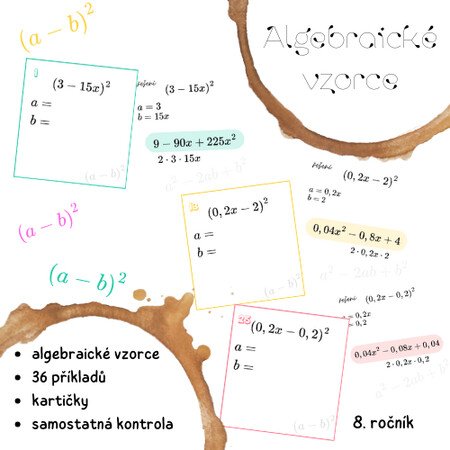 (a − b)²
Algebraické
vzorce
9
(3 − 15x)²
a =
b =
(a − b)²
řešení
(3 − 15x)²
a = 3
b = 15x
9 − 90x + 225x²
2 · 3 · 15x
a² − 2ab + b²
(0, 2x − 2)²
a =
b =
(a − b)²
řešení
(0, 2x − 2)²
a = 0, 2x
b = 2
0, 04x² − 0, 8x + 4
2 · 0, 2x · 2
a² − 2ab + b²
(a − b)²
(a − b)²
(0, 2x − 0, 2)²
a =
b =
(a − b)²
řešení
(0, 2x − 0, 2)²
= 0, 2x
= 0, 2
0, 04x² − 0, 08x + 0, 04
2 · 0, 2x · 0, 2
a² − 2ab + b²
• algebraické vzorce
• 36 příkladů
• kartičky
• samostatná kontrola
8. ročník